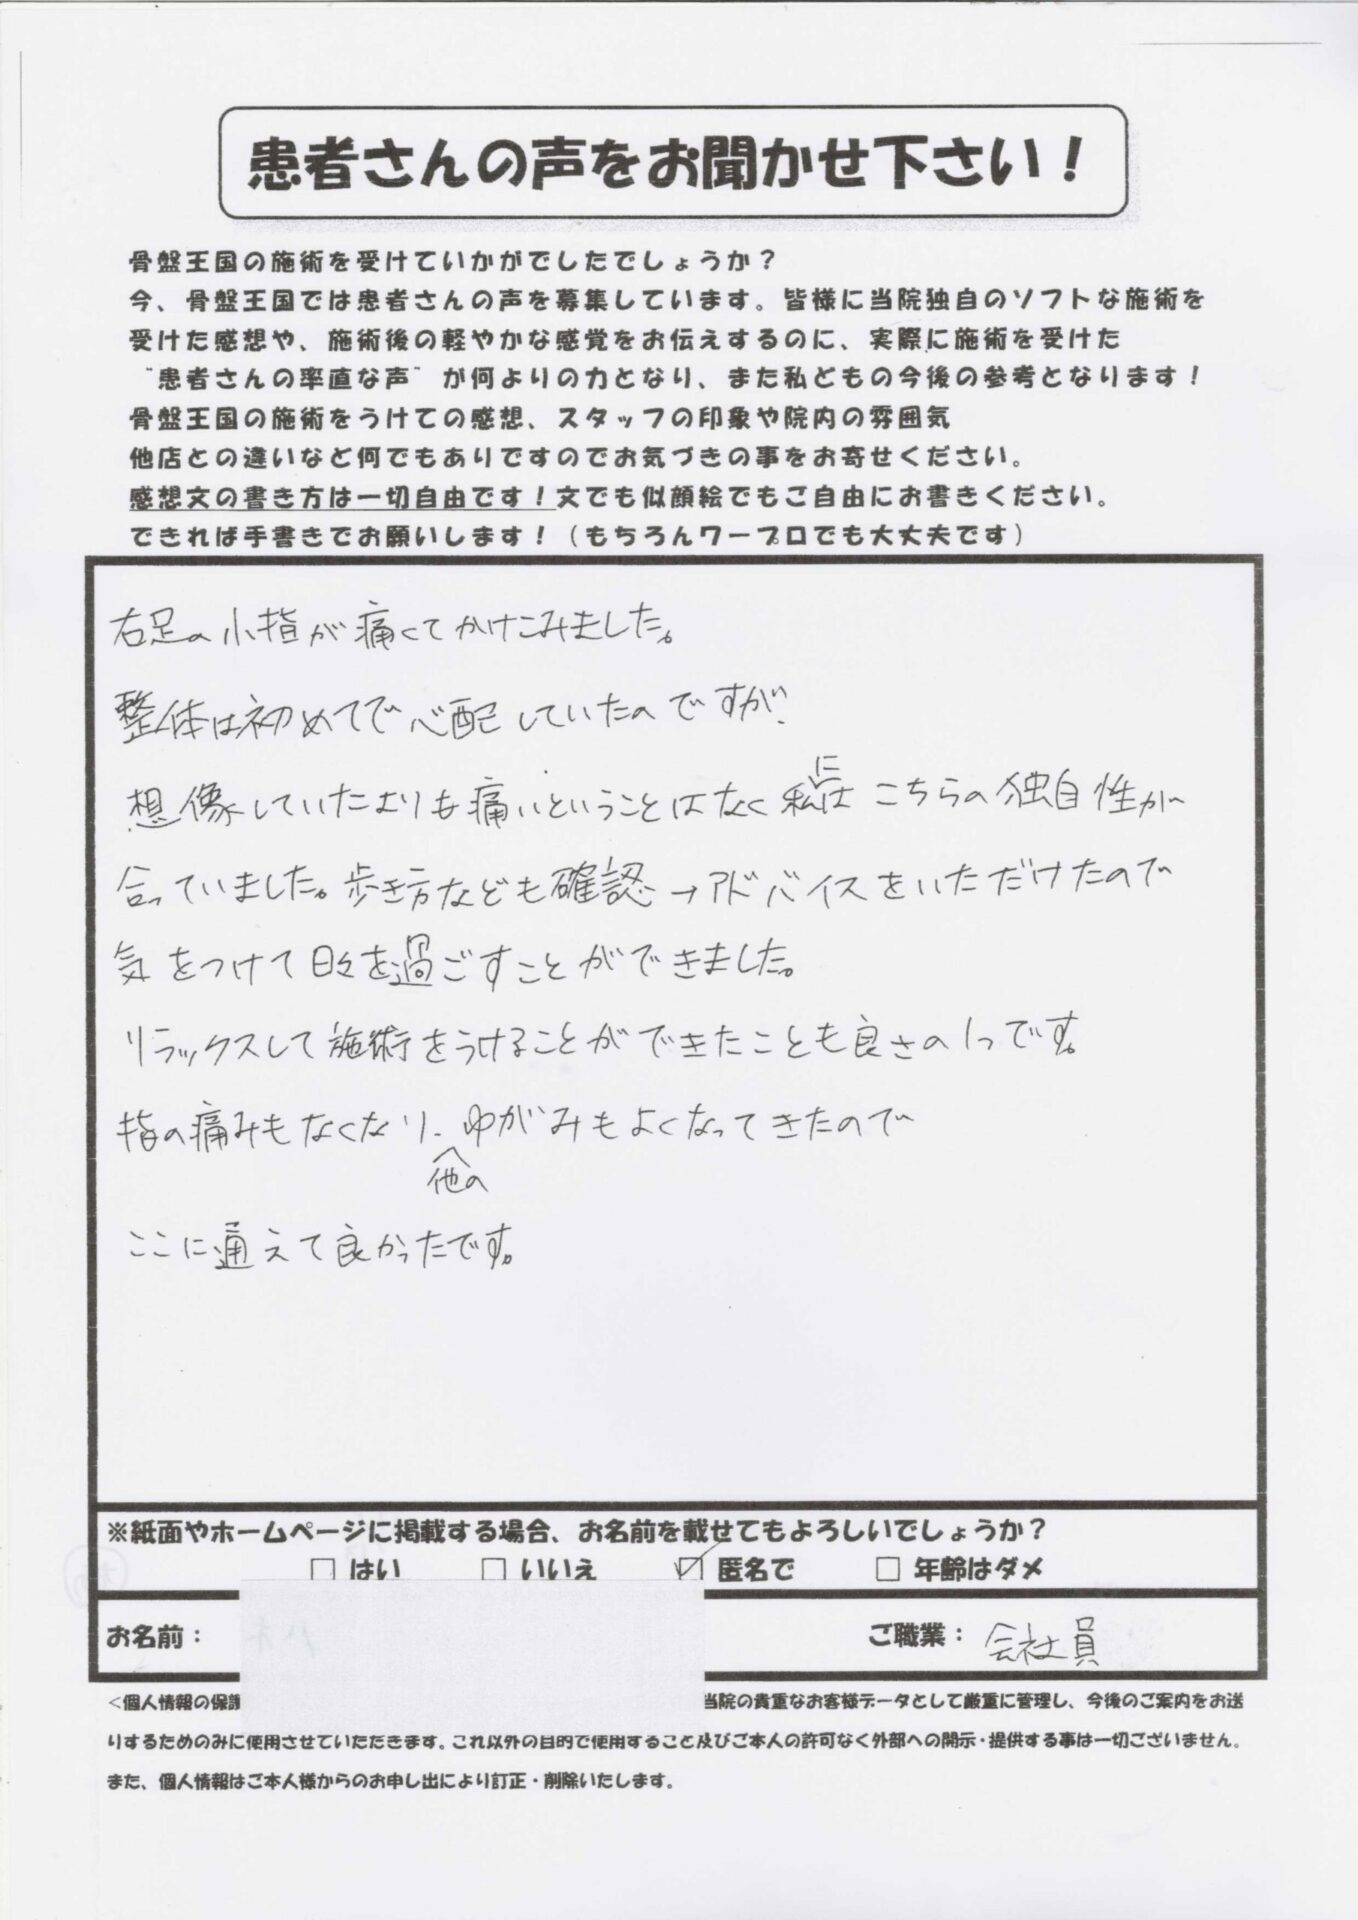 患者さんの声をお聞かせ下さい！
骨盤王国の施術を受けていかがでしたでしょうか？
今、骨盤王国では患者さんの声を募集しています。皆様に当院独自のソフトな施術を
受けた感想や、施術後の軽やかな感覚をお伝えするのに、実際に施術を受けた
“患者さんの率直な声”が何よりの力となり、また私どもの今後の参考となります！
骨盤王国の施術をうけての感想、スタッフの印象や院内の雰囲気
他店との違いなど何でもありですのでお気づきの事をお寄せください。
感想文の書き方は一切自由です！文でも似顔絵でもご自由にお書きください。
できれば手書きでお願いします！（もちろんワープロでも大丈夫です）
右足の小指が痛くてかけこみました。
整体は初めてで心配していたのですが、
想像していたよりも痛いということはなく私にはこちらの独自性が
合っていました。歩き方なども確認→アドバイスをいただけたので
気をつけて日々を過ごすことができました。
リラックスして施術をうけることができたことも良さの1つです。
指の痛みもなくなり、他のゆがみもよくなってきたので
ここに通えて良かったです。
※紙面やホームページに掲載する場合、お名前を載せてもよろしいでしょうか？
□ はい □ いいえ ☑ 匿名で □ 年齢はダメ
お名前： ご職業：会社員
<個人情報の保護 当院の貴重なお客様データとして厳重に管理し、今後のご案内をお送
りするためのみに使用させていただきます。これ以外の目的で使用すること及びご本人の許可なく外部への開示・提供する事は一切ございません。
また、個人情報はご本人様からのお申し出により訂正・削除いたします。